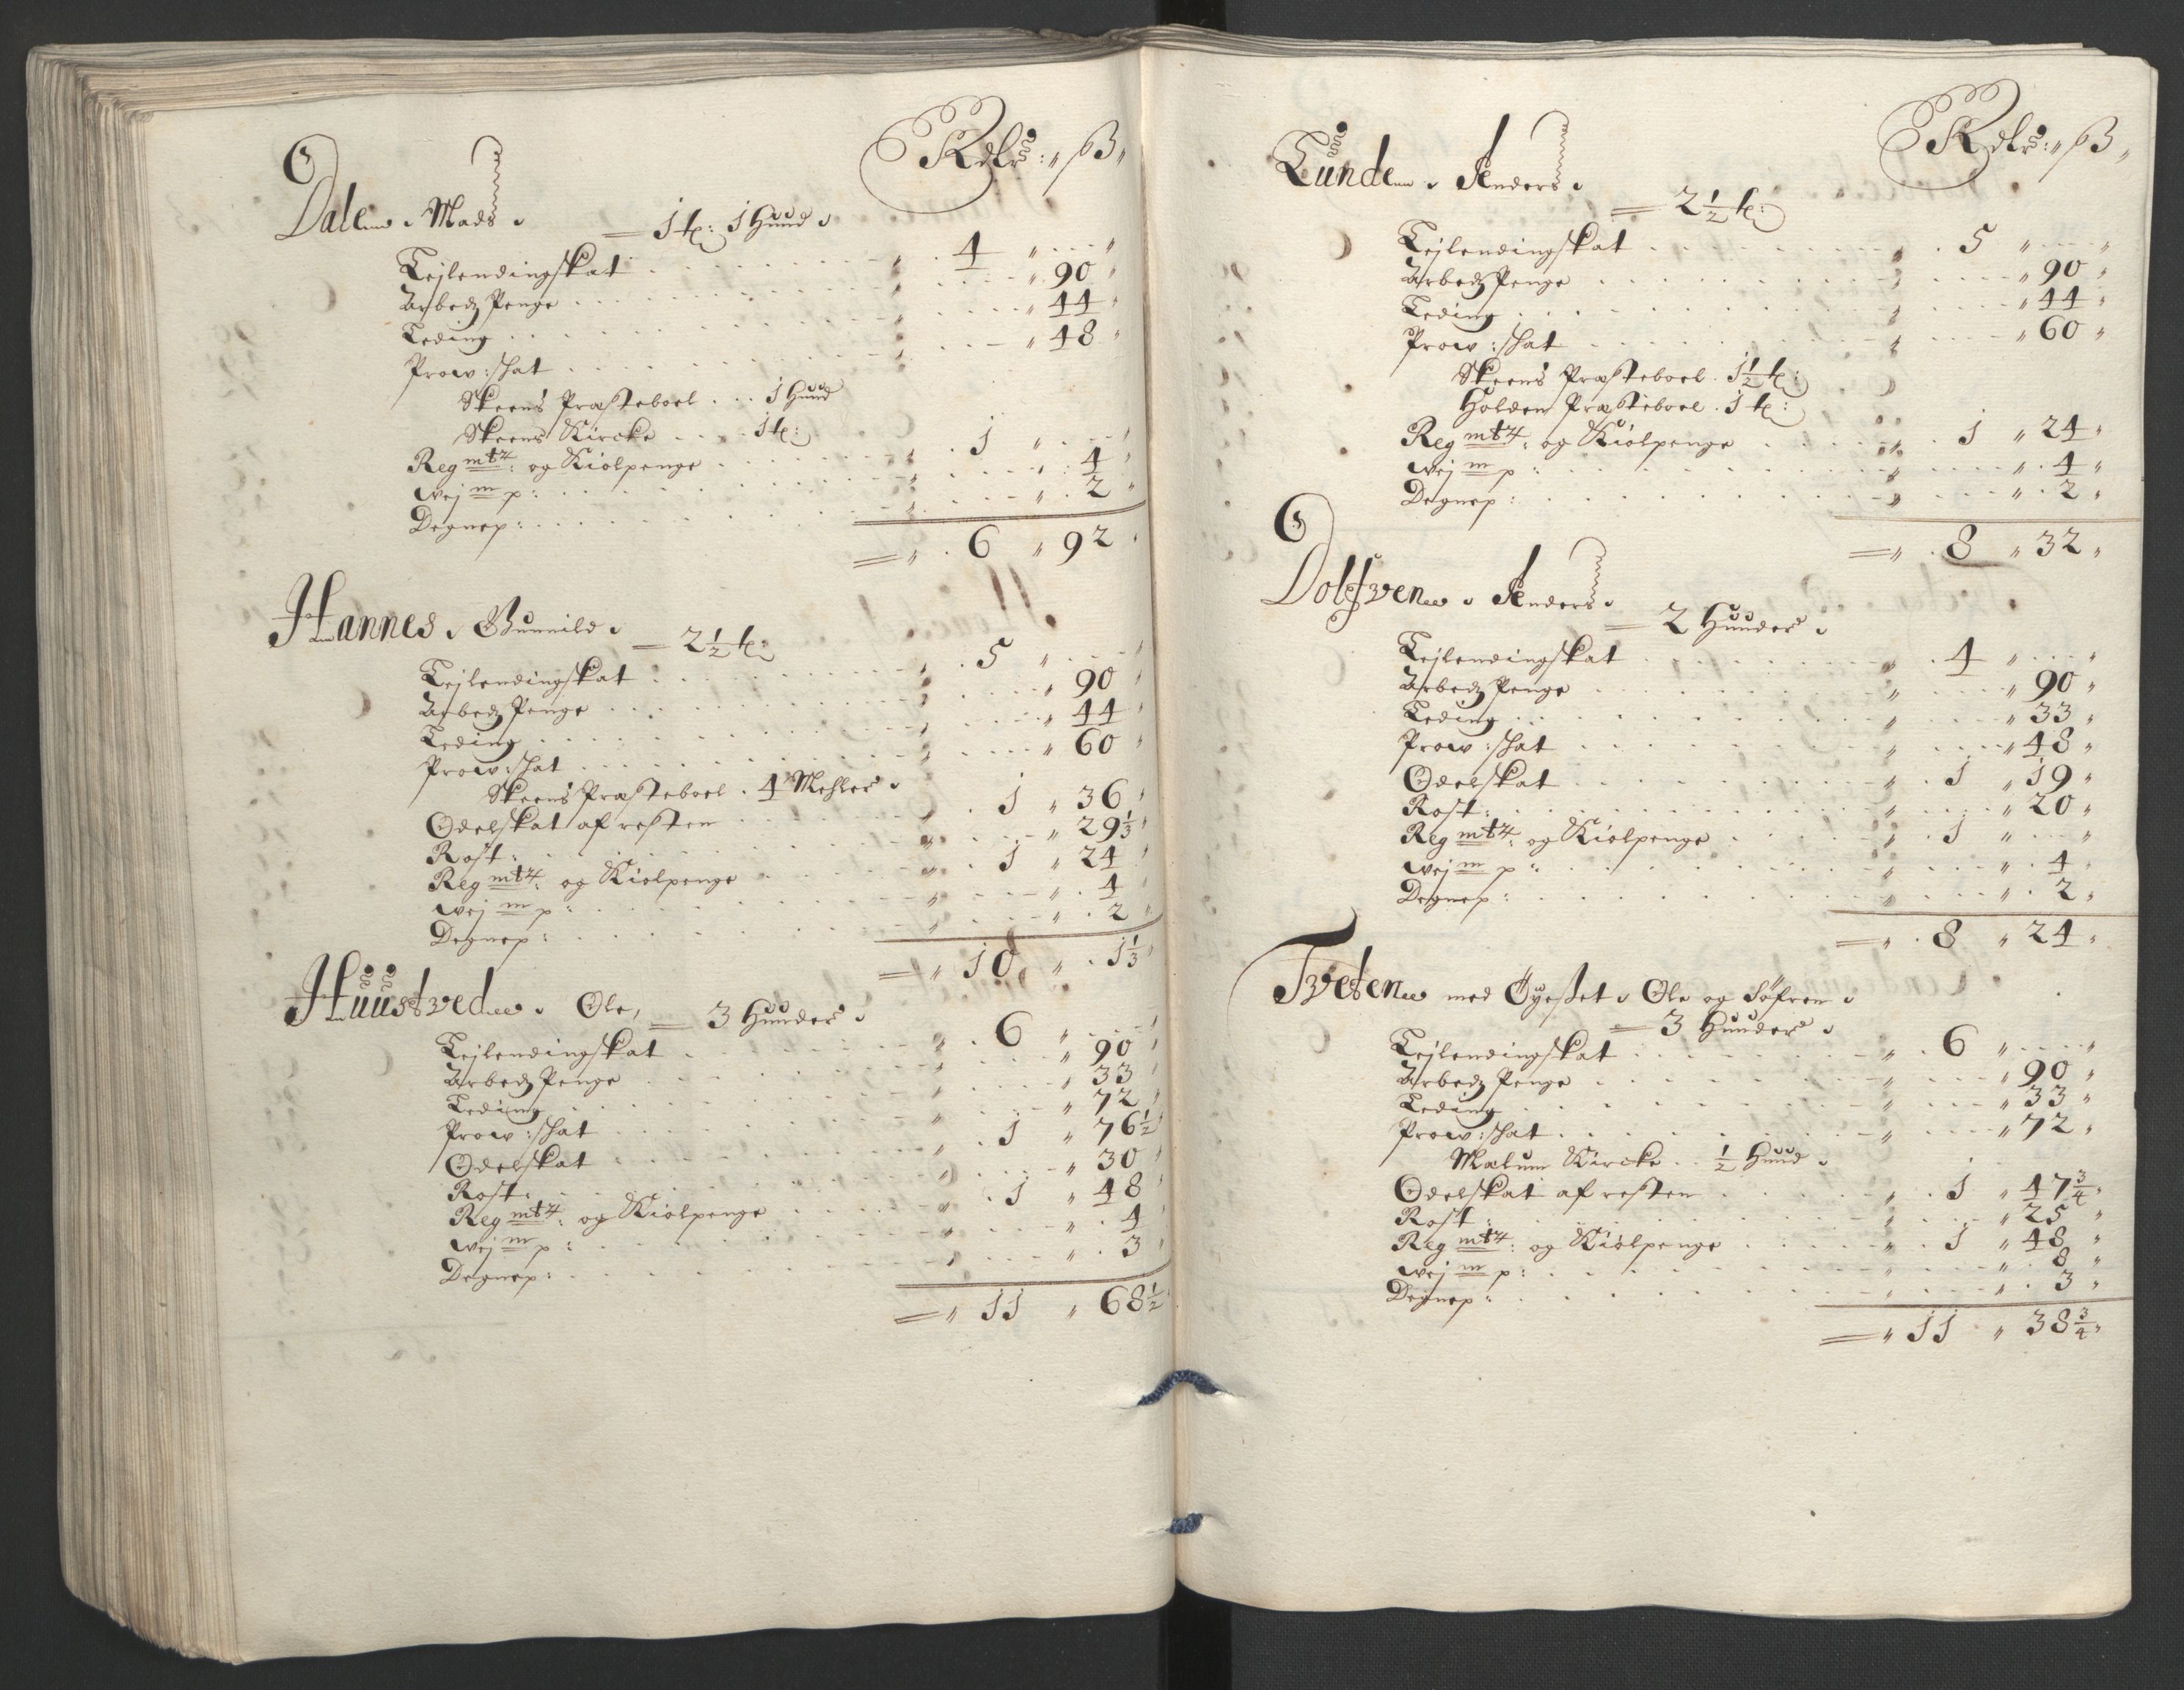 Rdlr: ß
Dalen Mads
1 t: 1 Hund
Lejlendingskat 4
Arbedz Penge 90
Leding 44
Prow: skat 48
Skeens Præsteboel 1 Hund
Skeens Kircke 1 t:
Reg mt4: og Kiolpenge 1
wej m p: 4
Degnep: 2
6 92
Hannes Gunnild
2 1/2 t:
Lejlendingskat 5
Arbedz Penge 90
Leding 44
Prow: skat 60
Skeens Præsteboel 4 Mehler
Odelskat af resten 1 36
Rost: 29 1/3
Reg mt4: og Kiolpenge 1 24
wej m p: 4
Degnep: 2
10 1 1/3
Huustved Ole,
3 Hunder
Lejlendingskat 6
Arbedz Penge 90
Leding 33
Prow: skat 72
Odelskat 1 76 1/2
Rost: 30
Reg mt4: og Kiolpenge 1 48
wej m p: 4
Degnep: 3
11 68 1/2
Rdlr: ß
Lunde Anders
2 1/2 t:
Lejlendingskat 5
Arbedz Penge 90
Leding 44
Prow: skat 60
Skeens Præsteboel 1 1/2 t:
Holden Præsteboel 1 t:
Reg mt4: og Kiolpenge 1 24
wej m p: 4
Degnep: 2
8 32
Dolfven Anders
2 Hunder
Lejlendingskat 4
Arbedz Penge 90
Leding 33
Prow: skat 48
Odelskat 1 19
Rost: 20
Reg mt4: og Kiolpenge 1
wej m p: 4
Degnep: 2
8 24
Tveten med Öyeset Ole og Söfren
3 Hunder
Lejlendingskat 6
Arbedz Penge 90
Leding 33
Prow: skat 72
Mælum Kircke 1/2 Hund
Odelskat af resten 1 47 3/4
Rost: 25
Reg mt4: og Kiolpenge 1 48
wej m p: 8
Degnep: 3
11 38 3/4